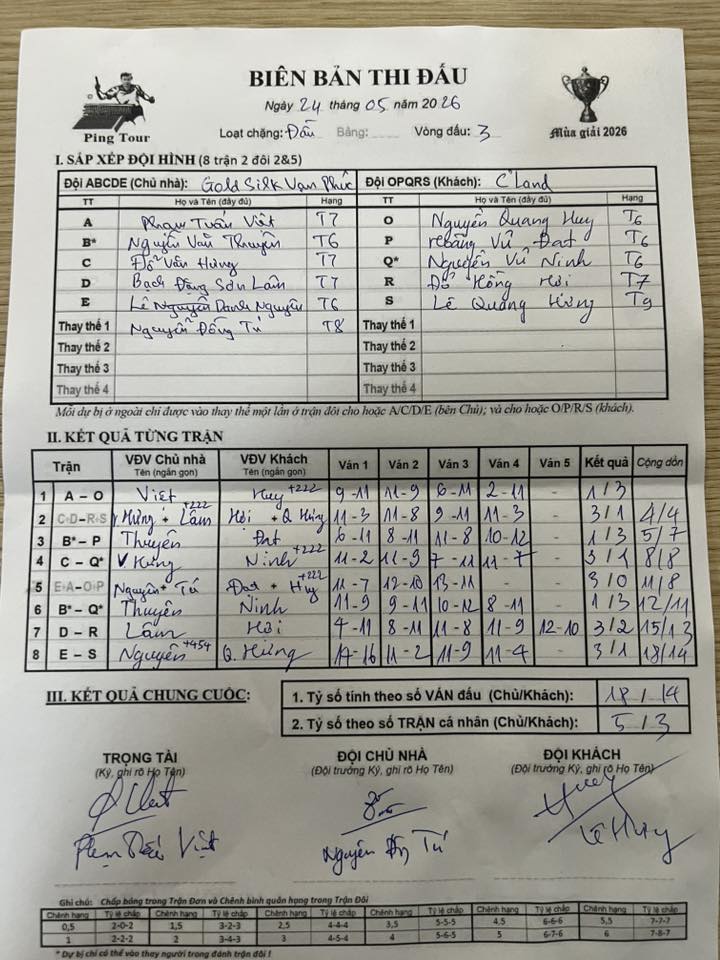 BIÊN BẢN THI ĐẤU
Ngày 24 tháng 05 năm 2026
Ping Tour
Loạt chặng: Đấu Bảng: Vòng đấu: 3
Mùa giải 2026
I. SẮP XẾP ĐỘI HÌNH (8 trận 2 đôi 2&5)
Đội ABCDE (Chủ nhà): Gold Silk Vạn Phúc Đội OPQRS (Khách): C'Land
TT Họ và Tên (đầy đủ) Hạng TT Họ và Tên (đầy đủ) Hạng
A Phạm Tuấn Việt T7 O Nguyễn Quang Huy T6
B* Nguyễn Văn Thuyên T6 P Vũ Đạt T6
C Đỗ Văn Hưng T7 Q* Nguyễn Vũ Ninh T6
D Bạch Đặng Sơn Lâm T7 R Đỗ Hồng Hời T7
E Lê Nguyễn Danh Nguyên T6 S Lê Quang Hưng T9
Thay thế 1 Nguyễn Đông Tú T8 Thay thế 1
Thay thế 2 Thay thế 2
Thay thế 3 Thay thế 3
Thay thế 4 Thay thế 4
Mỗi dự bị ở ngoài chỉ được vào thay thế một lần ở trận đôi cho hoặc A/C/D/E (bên Chủ); và cho hoặc O/P/R/S (khách).
II. KẾT QUẢ TỪNG TRẬN
Trận VĐV Chủ nhà Tên (ngắn gọn) VĐV Khách Tên (ngắn gọn) Ván 1 Ván 2 Ván 3 Ván 4 Ván 5 Kết quả Cộng dồn
1 A - O Việt Huy +222 9-11 11-9 6-11 2-11 - 1/3
2 C+D-R+S Hưng + Lâm Hời + Q Hưng 11-3 8-11 9-11 11-3 - 3/1 4/4
3 B* - P Thuyên Đạt 6-11 8-11 11-8 10-12 - 1/3 5/7
4 C - Q* V Hưng Ninh +222 11-2 11-9 7-11 11-7 - 3/1 8/8
5 E+A-O+P Nguyên + Tú Đạt + Huy +222 11-7 12-10 13-11 - - 3/0 11/8
6 B* - Q* Thuyên Ninh 11-9 9-11 10-12 8-11 - 1/3 12/11
7 D - R Lâm Hời 4-11 8-11 11-8 11-9 12-10 3/2 15/13
8 E - S Nguyên +454 Q. Hưng 14-16 11-2 11-9 11-4 - 3/1 18/14
III. KẾT QUẢ CHUNG CUỘC:
1. Tỷ số tính theo số VÁN đấu (Chủ/Khách): 18/14
2. Tỷ số theo số TRẬN cá nhân (Chủ/Khách): 5/3
TRỌNG TÀI ĐỘI CHỦ NHÀ ĐỘI KHÁCH
(Ký, ghi rõ Họ Tên) (Đội trưởng Ký, ghi rõ Họ Tên) (Đội trưởng Ký, ghi rõ Họ Tên)
Phạm Tuấn Việt Nguyễn Đông Tú Lê Huy
Ghi chú: Chấp bóng trong Trận Đơn và Chênh bình quân hạng trong Trận Đôi
Chênh hạng Tỷ lệ chấp Chênh hạng Tỷ lệ chấp Chênh hạng Tỷ lệ chấp Chênh hạng Tỷ lệ chấp Chênh hạng Tỷ lệ chấp Chênh hạng Tỷ lệ chấp
0,5 2-0-2 1,5 3-2-3 2,5 4-4-4 3,5 5-5-5 4,5 6-6-6 5,5 7-7-7
1 2-2-2 2 3-4-3 3 4-5-4 4 5-6-5 5 6-7-6 6 7-8-7
* Dự bị chỉ có thể vào thay người trong đánh trận đôi !